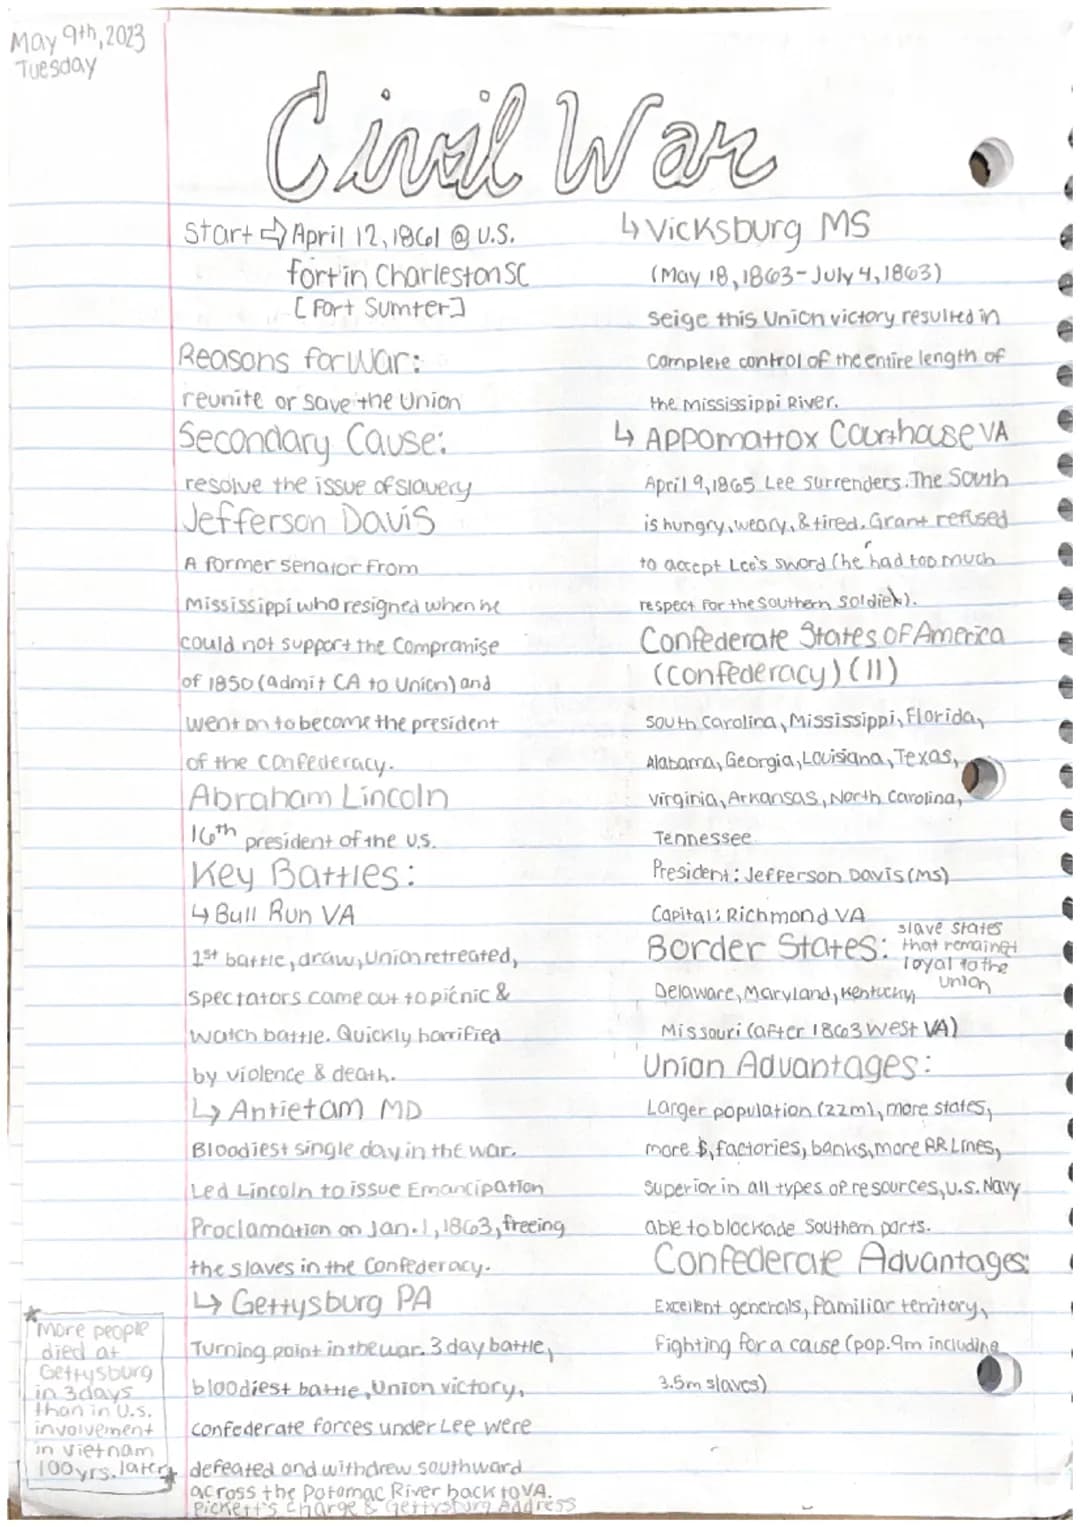 May 9th, 2023
Tuesday
Civil War
Start ⇨ April 12, 1861 @ U.S.
fort in Charleston SC
[Fort Sumter]
Reasons for War:
reunite or save the Union
Secondary Cause:
resolve the issue of slavery
Jefferson Davis
A former senator from
Mississippi who resigned when he
could not support the Compromise
of 1850 (admit CA to Union) and
went on to become the president
of the Confederacy.
Abraham Lincoln
16th president of the U.S.
Key Battles:
↳ Bull Run VA
1st battle, draw, Union retreated,
Spectators came out to picnic &
watch battle. Quickly horrified
by violence & death.
↳ Antietam MD
Bloodiest single day in the war.
Led Lincoln to issue Emancipation
Proclamation on Jan. 1, 1863, freeing
the slaves in the Confederacy.
↳ Gettysburg PA
Turning point in the war. 3 day battle,
bloodiest battle, Union victory,
confederate forces under Lee were
defeated and withdrew southward
across the Potomac River back to VA.
Pickett's Charge & Gettysburg Address
*
More people
died at
Gettysburg
in 3days
than in U.S.
involvement
in Vietnam
100yrs. later
*
↳ Vicksburg MS
(May 18, 1863 - July 4, 1863)
seige this Union victory resulted in
complete control of the entire length of
the Mississippi River.
↳ Appomattox Courthouse VA
April 9, 1865 Lee surrenders. The South
is hungry, weary, & tired. Grant refused
to accept Lee's sword (he had too much
respect for the Southern soldier).
Confederate States of America
(Confederacy) (11)
South Carolina, Mississippi, Florida,
Alabama, Georgia, Louisiana, Texas,
Virginia, Arkansas, North Carolina,
Tennessee
President: Jefferson Davis (MS)
Capital: Richmond VA
Border States: slave states
that remained
loyal to the
union
Delaware, Maryland, Kentucky,
Missouri (after 1863 West VA)
Union Advantages:
Larger population (22m), more states,
more $, factories, banks, more RR Lines,
superior in all types of resources, U.S. Navy
able to blockade Southern ports.
Confederate Advantages:
Excellent generals, familiar territory,
Fighting for a cause (pop. 9m including
3.5m slaves)